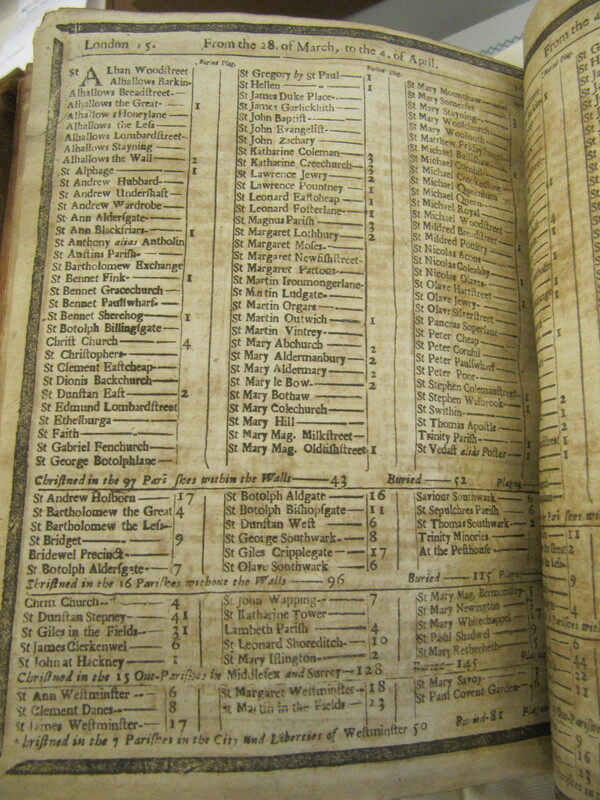 London 15. From the 28. of March, to the 4. of April.
Buried Plag.
St Alban Woodstreet
Alhallows Barkin
Alhallows Breadstreet
Alhallows the Great 1
Alhallows Honeylane
Alhallows the Less
Alhallows Lombardstreet
Alhallows Stayning
Alhallows the Wall 2
St Alphage 1
St Andrew Hubbard
St Andrew Undershaft
St Andrew Wardrobe
St Ann Aldersgate
St Ann Blackfriars 1
St Anthony alias Antholin
St Austins Parish
St Bartholomew Exchange
St Bennet Fink 1
St Bennet Gracechurch
St Bennet Paulswharf
St Bennet Sherehog 1
St Botolph Billingsgate
Christ Church 4
St Christophers
St Clement Eastcheap
St Dionis Backchurch
St Dunstan East 2
St Edmund Lombardstreet
St Ethelburga
St Faith
St Gabriel Fenchurch
St George Botolphlane
Buried Plag.
St Gregory by St Paul 1
St Hellen 1
St James Duke Place
St James Garlickhith
St John Baptist
St John Evangelist
St John Zachary
St Katharine Coleman
St Katharine Creechurch 3
St Lawrence Jewry 2
St Lawrence Pountney
St Leonard Eastcheap 1
St Leonard Fosterlane
St Magnus Parish
St Margaret Lothbury
St Margaret Moses
St Margaret Newfishstreet
St Margaret Pattons
St Martin Ironmongerlane
St Martin Ludgate
St Martin Orgars
St Martin Outwich 1
St Martin Vintrey
St Mary Abchurch
St Mary Aldermanbury 2
St Mary Aldermary 2
St Mary le Bow 2
St Mary Bothaw
St Mary Colechurch
St Mary Hill
St Mary Mag. Milkstreet
St Mary Mag. Oldfishstreet 1
St Mary Mounthaw
St Mary Somerset
St Mary Stayning
St Mary Woolchurch
St Mary Woolnoth
St Matthew Fridaystreet
St Michael Bassishaw
St Michael Cornhil
St Michael Crookedlane
St Michael Queenhith
St Michael Quern
St Michael Royal
St Michael Woodstreet
St Mildred Breadstreet
St Mildred Poultry
St Nicolas Acons
St Nicolas Coleabby
St Nicolas Olaves
St Olave Hartstreet
St Olave Jewry
St Olave Silverstreet
St Pancras Soperlane
St Peter Cheap
St Peter Cornhil
St Peter Paulswharf
St Peter Poor
St Stephen Colemanstreet
St Stephen Walbrook
St Swithin
St Thomas Apostle
Trinity Parish
St Vedast alias Foster
Christned in the 97 Parishes within the Walls 43 Buried 52 Plague
St Andrew Holborn 17
St Bartholomew the Great 4
St Bartholomew the Less
St Bridget 9
Bridewel Precinct
St Botolph Aldersgate 7
St Botolph Aldgate 16
St Botolph Bishopsgate 11
St Dunstan West 6
St George Southwark 8
St Giles Cripplegate 17
St Olave Southwark 6
Saviour Southwark
St Sepulchres Parish
St Thomas Southwark
Trinity Minories
At the Pesthouse
Christned in the 16 Parishes without the Walls 96 Buried 115 Plague
Christ Church 4
St Dunstan Stepney 41
St Giles in the Fields 31
St James Clerkenwel 6
St John at Hackney 1
St John Wapping 7
St Katharine Tower
Lambeth Parish 4
St Leonard Shoreditch 10
St Mary Islington 2
St Mary Mag. Bermondsey
St Mary Newington
St Mary Whitechappel
St Paul Shadwel
St Mary Retherhith
Christned in the 15 Out-Parishes in Middlesex and Surrey 128 Buried 145
St Ann Westminster 6
St Clement Danes 8
St James Westminster 17
St Margaret Westminster 18
St Martin in the Fields 23
St Mary Savoy
St Paul Covent Garden
Christned in the 7 Parishes in the City and Liberties of Westminster 50 Buried 81